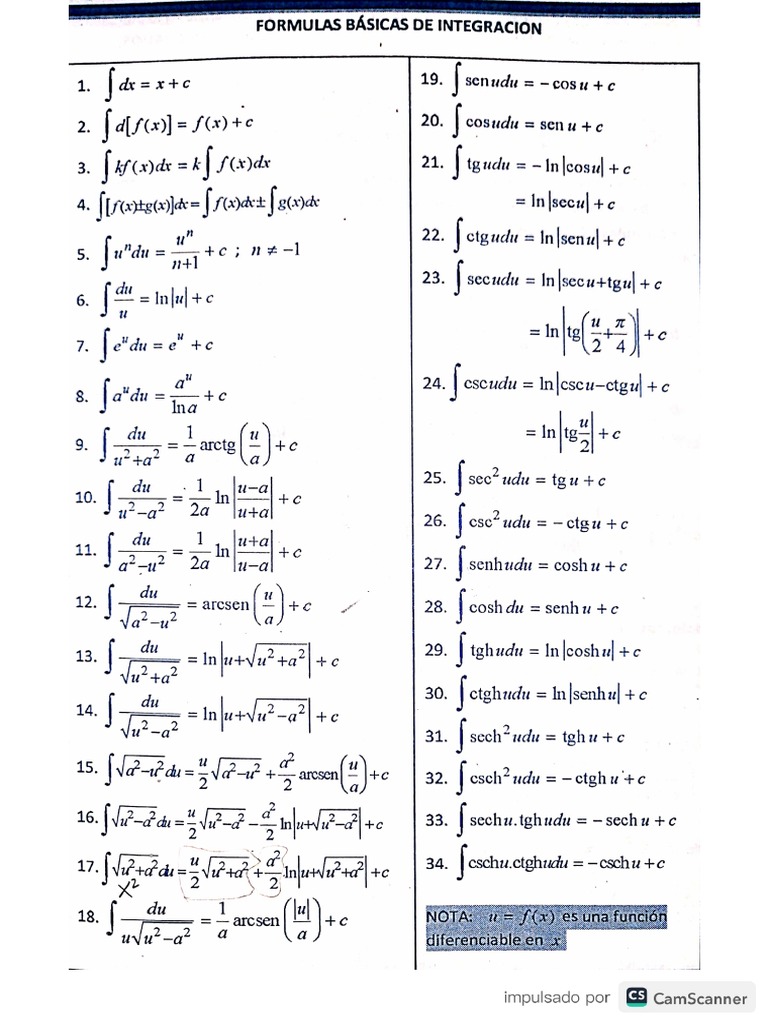 FORMULAS BÁSICAS DE INTEGRACION
1. ∫ dx = x + c
2. ∫ d[f(x)] = f(x) + c
3. ∫ kf(x)dx = k ∫ f(x)dx
4. ∫[f(x)±g(x)]dx = ∫ f(x)dx ± ∫ g(x)dx
5. ∫ uⁿdu = uⁿ/(n+1) + c ; n ≠ −1
6. ∫ du/u = ln|u| + c
7. ∫ eᵘdu = eᵘ + c
8. ∫ aᵘdu = aᵘ/ln a + c
9. ∫ du/(u²+a²) = 1/a arctg(u/a) + c
10. ∫ du/(u²−a²) = 1/2a ln|(u−a)/(u+a)| + c
11. ∫ du/(a²−u²) = 1/2a ln|(u+a)/(u−a)| + c
12. ∫ du/√(a²−u²) = arcsen(u/a) + c
13. ∫ du/√(u²+a²) = ln|u+√(u²+a²)| + c
14. ∫ du/√(u²−a²) = ln|u+√(u²−a²)| + c
15. ∫√(a²−u²)du = u/2 √(a²−u²) + a²/2 arcsen(u/a) + c
16. ∫√(u²−a²)du = u/2 √(u²−a²) − a²/2 ln|u+√(u²−a²)| + c
17. ∫√(u²+a²)du = u/2 √(u²+a²) + a²/2 ln|u+√(u²+a²)| + c
x²
18. ∫ du/(u√(u²−a²)) = 1/a arcsen(|u|/a) + c
19. ∫ senudu = − cos u + c
20. ∫ cosudu = sen u + c
21. ∫ tgudu = − ln|cosu| + c
= ln|secu| + c
22. ∫ ctgudu = ln|senu| + c
23. ∫ secudu = ln|secu+tgu| + c
= ln|tg(u/2+π/4)| + c
24. ∫ cscudu = ln|cscu−ctgu| + c
= ln|tg u/2| + c
25. ∫ sec² udu = tg u + c
26. ∫ csc² udu = − ctg u + c
27. ∫ senhudu = cosh u + c
28. ∫ cosh du = senh u + c
29. ∫ tghudu = ln|coshu| + c
30. ∫ ctghudu = ln|senhu| + c
31. ∫ sech² udu = tgh u + c
32. ∫ csch² udu = − ctgh u + c
33. ∫ sechu.tghudu = − sech u + c
34. ∫ cschu.ctghudu = −csch u + c
NOTA: u = f(x) es una función
diferenciable en x
impulsado por CS CamScanner